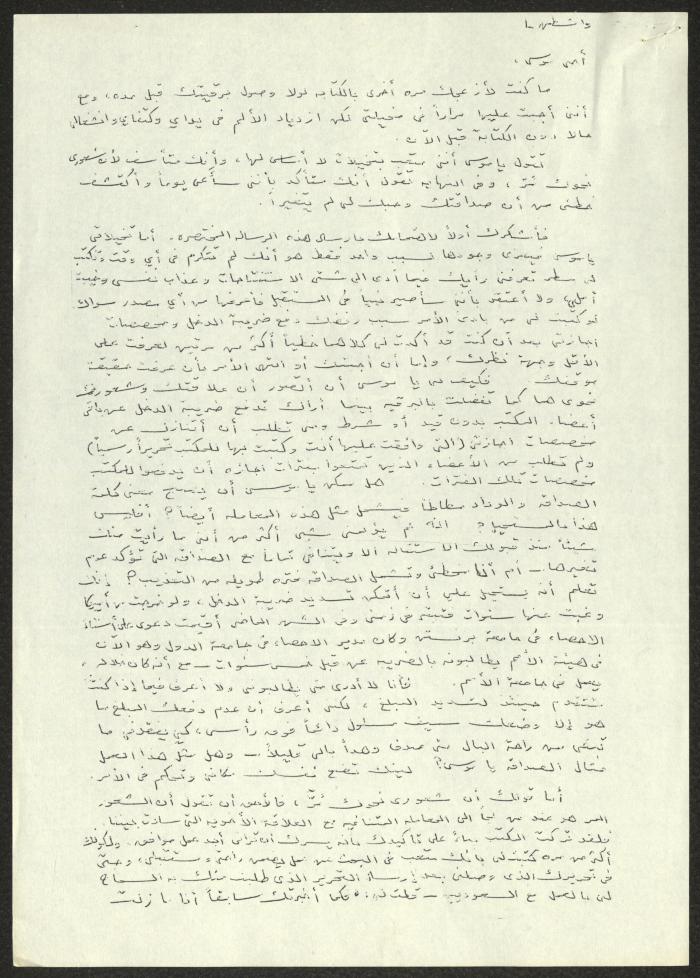 واشنطن
أخي موسى ،
ما كنت لأزعجك مره أخرى بالكتابه لولا وصول برقيتك قبل مده ، ومع
أنني أجبت عليها مراراً في مخيلتي لكن ازدياد الألم في يداي وكتفاي وانشغالي
حالا دون الكتابة قبل الآن .
تقول يا موسى أنني متعب بتخيلات لا أساس لها ، وأنك متأسف لأن شعوري
نحوك مُرّ ، وفي النهايه تقول أنك متأكد بأنني سأعي يوماً وأكتشف
خطئي من أن صداقتك وحبك لي لم يتغيرا .
فأشكرك أولاً لاهتمامك بارسال هذه الرساله المختصره . أما تخيلاتي
يا موسى فيعزى وجودها لسبب واحد فقط هو أنك لم تتكرم في أي وقت وتكتب
لي سطر تعرفني رأيك فيما أدى الى شتى الاستنتاجات وعذاب نفسي وخيبة
أملي ، ولا أعتقد بأنني سأصير نبياً في المستقبل فأعرفها من أي مصدر سواك
لو كتبت لي من بادئ الأمر سبب رفضك دفع ضريبة الدخل ومخصصات
اجازتي بعد أن كنت قد أكدت لي كلاهما خطياً أكثر من مرتين لعرفت على
الأقل وجهة نظرك ، وإما أن أجبتك أو انتهى الأمر بأن عرفت حقيقة
موقفك . فكيف لي يا موسى أن أتصور أن علاقتك وشعورك
نحوي هما كما تفضلت بالبرقيه بينما أراك تدفع ضريبة الدخل عن باقي
أعضاء المكتب بدون قيد أو شرط ومني تطلب أن أتنازل عن
مخصصات اجازتي (التي وافقت عليها أنت وكتبت بها للمكتب تحريراً رسمياً)
ولم تطلب من الأعضاء الذين تمتعوا بفترات اجازه أن يدفعوا للمكتب
مخصصات تلك الفترات . هل يمكن يا موسى أن يصبح معنى كلمة
الصداقه والوداد مطاطاً فيشمل مثل هذه المعامله أيضاً ؟ أفليس
هذا مستحيلاً ؟ انه لم يؤلمني شيئ أكثر من أنني ما رأيت منك
شيئاً منذ قبولك الاستقاله الا ويتنافى تماماً مع الصداقه التي تؤكد عدم
تغيرها . أم أنا مخطئ وتشمل الصداقه فتره طويله من التعذيب ؟ إنك
تعلم أنه يستحيل علي أن أتمكن تسديد ضريبة الدخل ، ولو خرجت من أميركا
وغبت عنها سنوات فتبقى في ذمتي وفي الشهر الحاضر أقيمت دعوى على أستاذ
الاحصاء في جامعة برنستن وكان مدير الاحصاء في جامعة الدول وهو الآن
في هيئة الأمم يطالبونه بالضريبه عن قبل خمس سنوات – مع أنه كان
يعمل في جامعة الأمم . فأنا لا أدري متى يطالبونني ولا أعرف فيما إذا كنت
ستتقدم حينئذ لتسديد المبلغ ، لكنني أعرف أن عدم دفعك المبلغ ما
هو إلا وضعك سيف مسلول دائماً فوق رأسي ، كي يفقدني ما
تبقى من راحة البال متى صدف وهدأ بالي قليلاً – وهل مثل هذا العمل
مثال الصداقه يا موسى ؟ ليتك تضع نفسك مكاني وتحكم في الأمر .
أما قولك أن شعوري نحوك مُرّ ، فالأصح أن تقول أن الشعور
المر هو عند من لجأ الى المعامله المتنافيه مع العلاقة الأخويه التي سادت بيننا
فلقد تركت المكتب بناءً على تأكيدك بأنه يسرك أن تراني أجد عمل موافق . ولكونك
أكثر من مره كتبت لي بأنك متعب في البحث عن عمل يضمن راحتي ومستقبلي ، وحتى
في تحريرك الذي وصلني بعد إرسال التحرير الذي طلبت منك به السماح
لي بالعمل مع السعوديين – قلت لي : فكما أخبرتك سابقاً أنا ما زلت